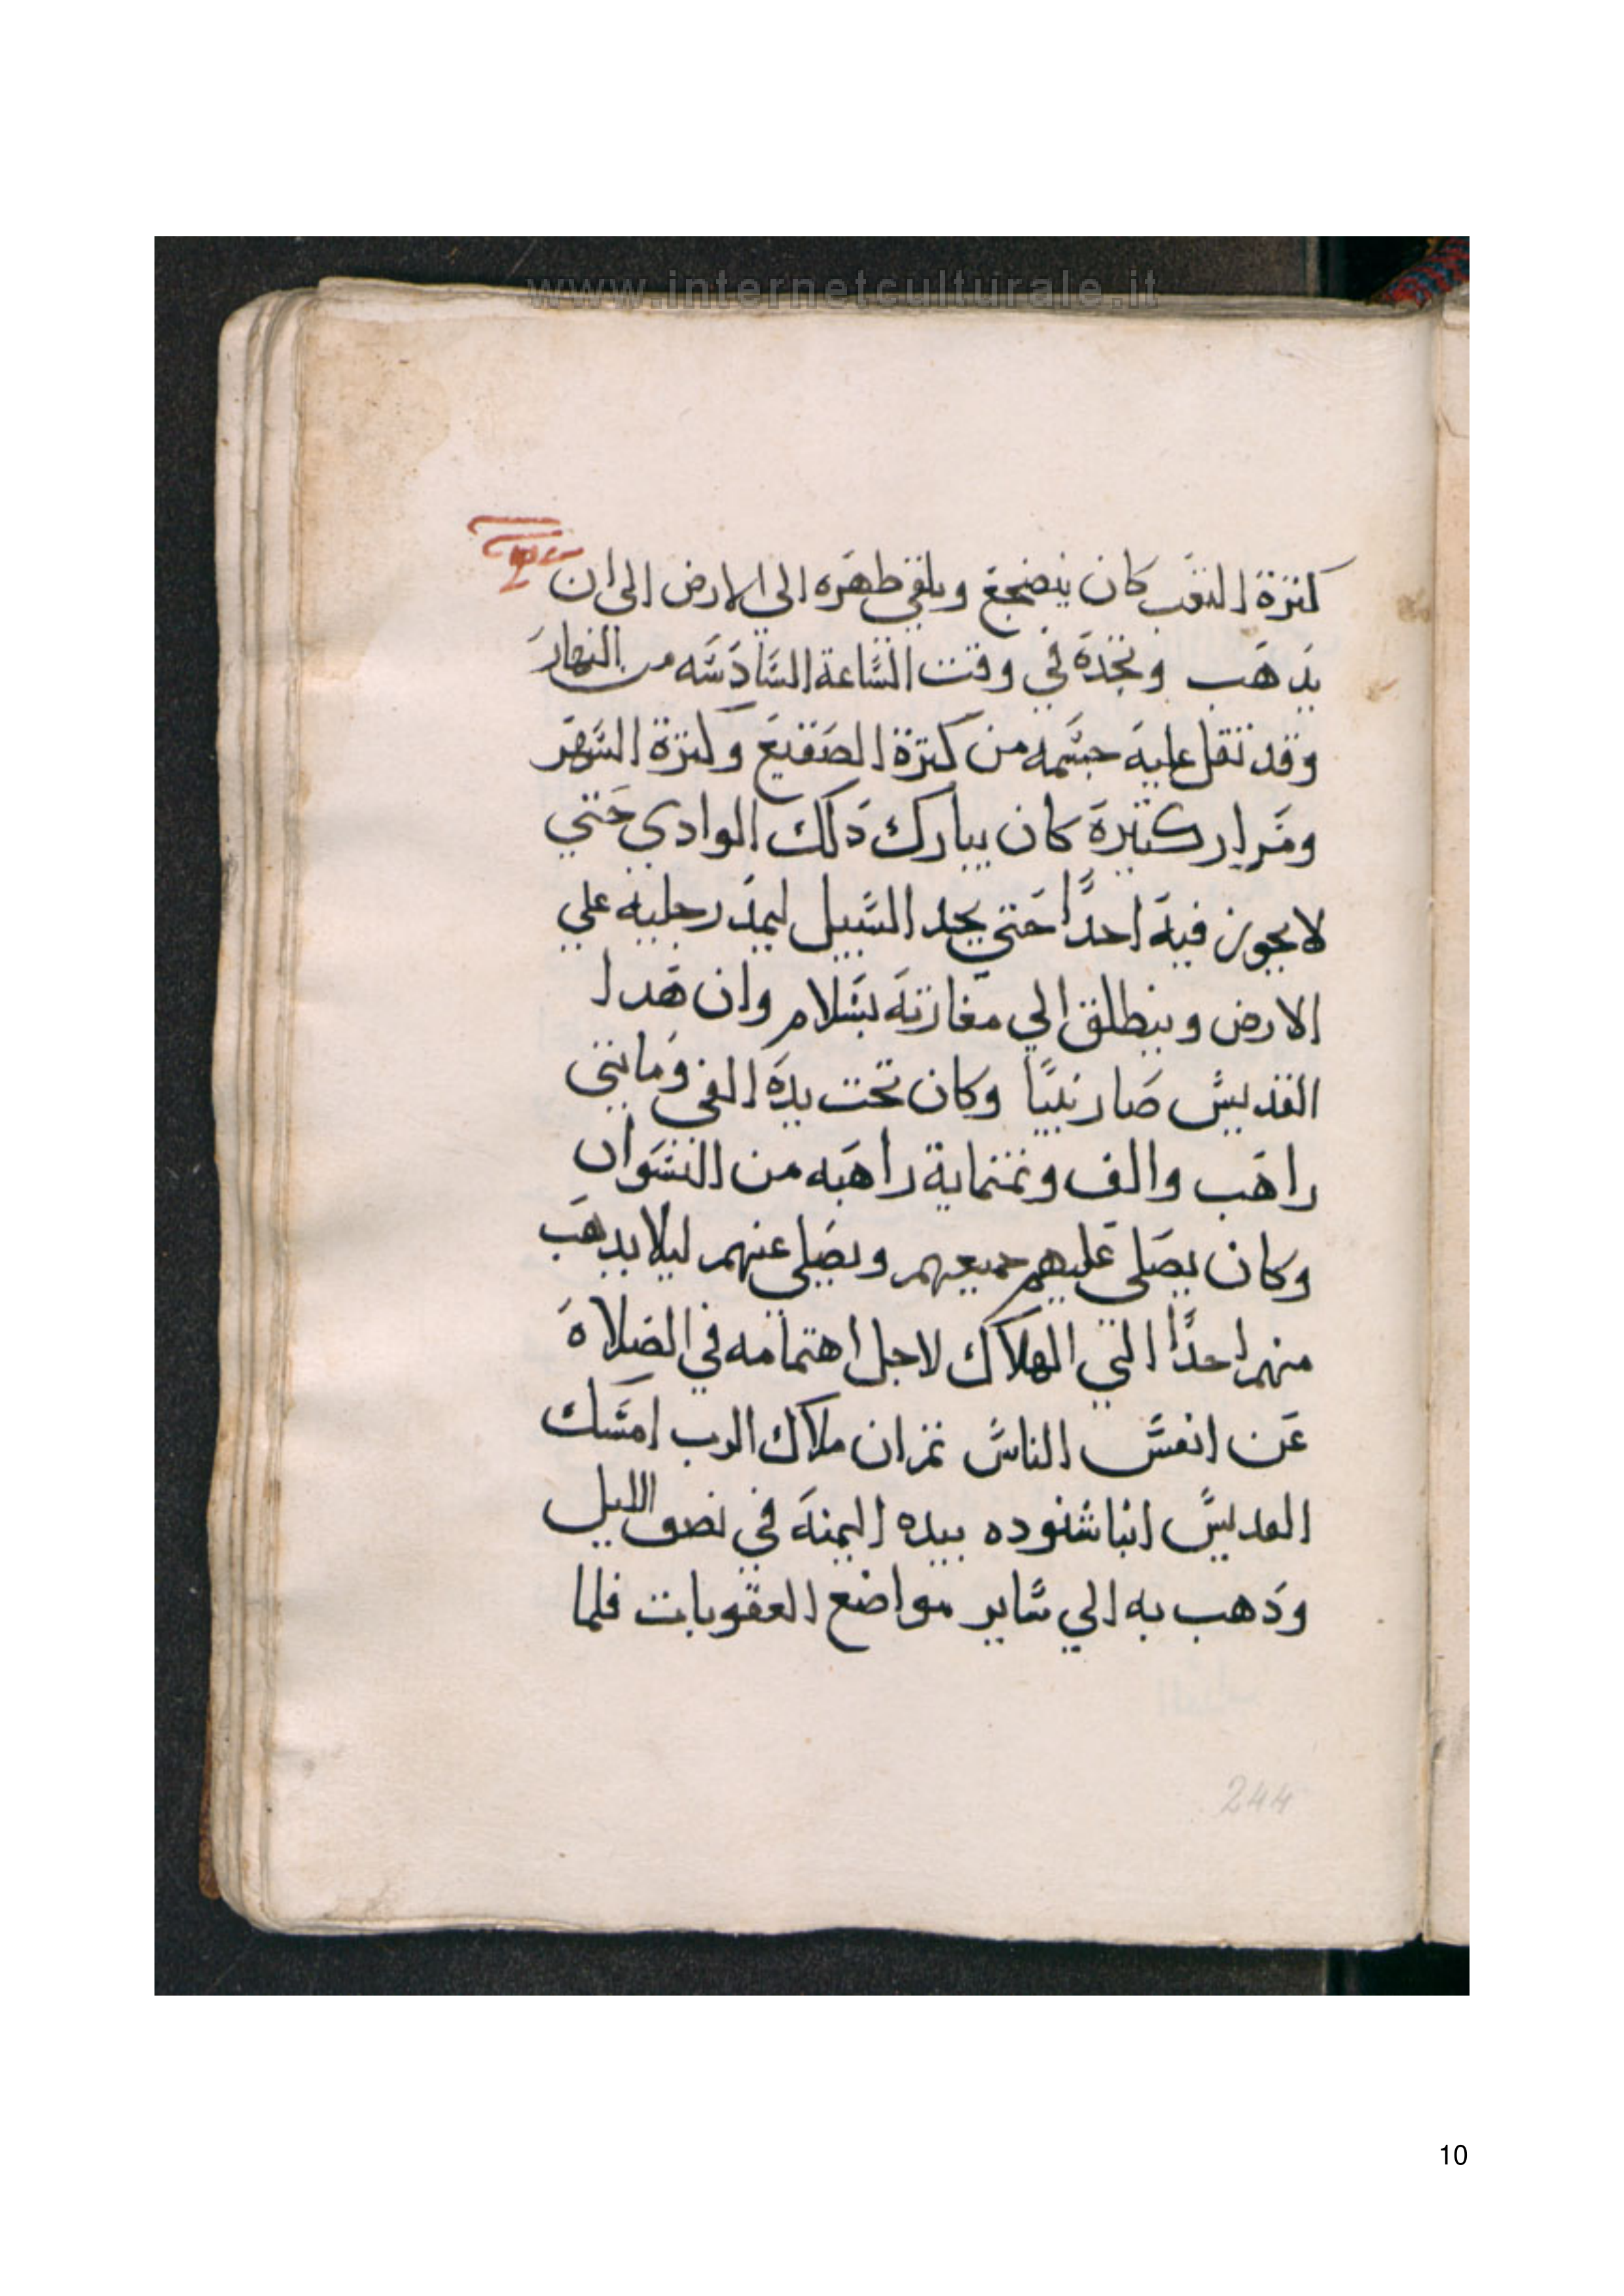 www.internetculturale.it
كثرة التعب كان ينضجع ويلقي ظهره الي الارض الي ان
يدهب وتجده في وقت الساعة السادسه من النهار
وقد ثقل عليه جسمه من كثرة الصقيع وكثرة السهر
ومرار كثيرة كان يبارك دلك الوادي حتي
لا يجوز فيه احدًا حتي يجد السبيل ليمد رجليه علي
الارض وينطلق الي مغارته بسلام وان هدا
القديس صار نبيًا وكان تحت يده الفي ومايتي
راهب والف وثمنماية راهبه من النسوان
وكان يصلي عليهم جميعهم ويصلي عنهم ليلا يدهب
منهم احدًا الي الهلاك لاجل اهتمامه في الصلاة
عن انفس الناس ثم ان ملاك الرب امسك
القديس انبا شنوده بيده اليمنة في نصف الليل
ودهب به الي ساير مواضع العقوبات فلما
244
10